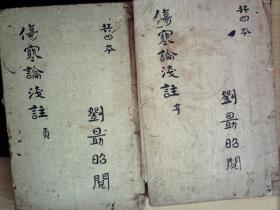 共四本
傷寒論淺註 貞
劉最昭閱
共四本
傷寒論淺註 亨
劉最昭閱